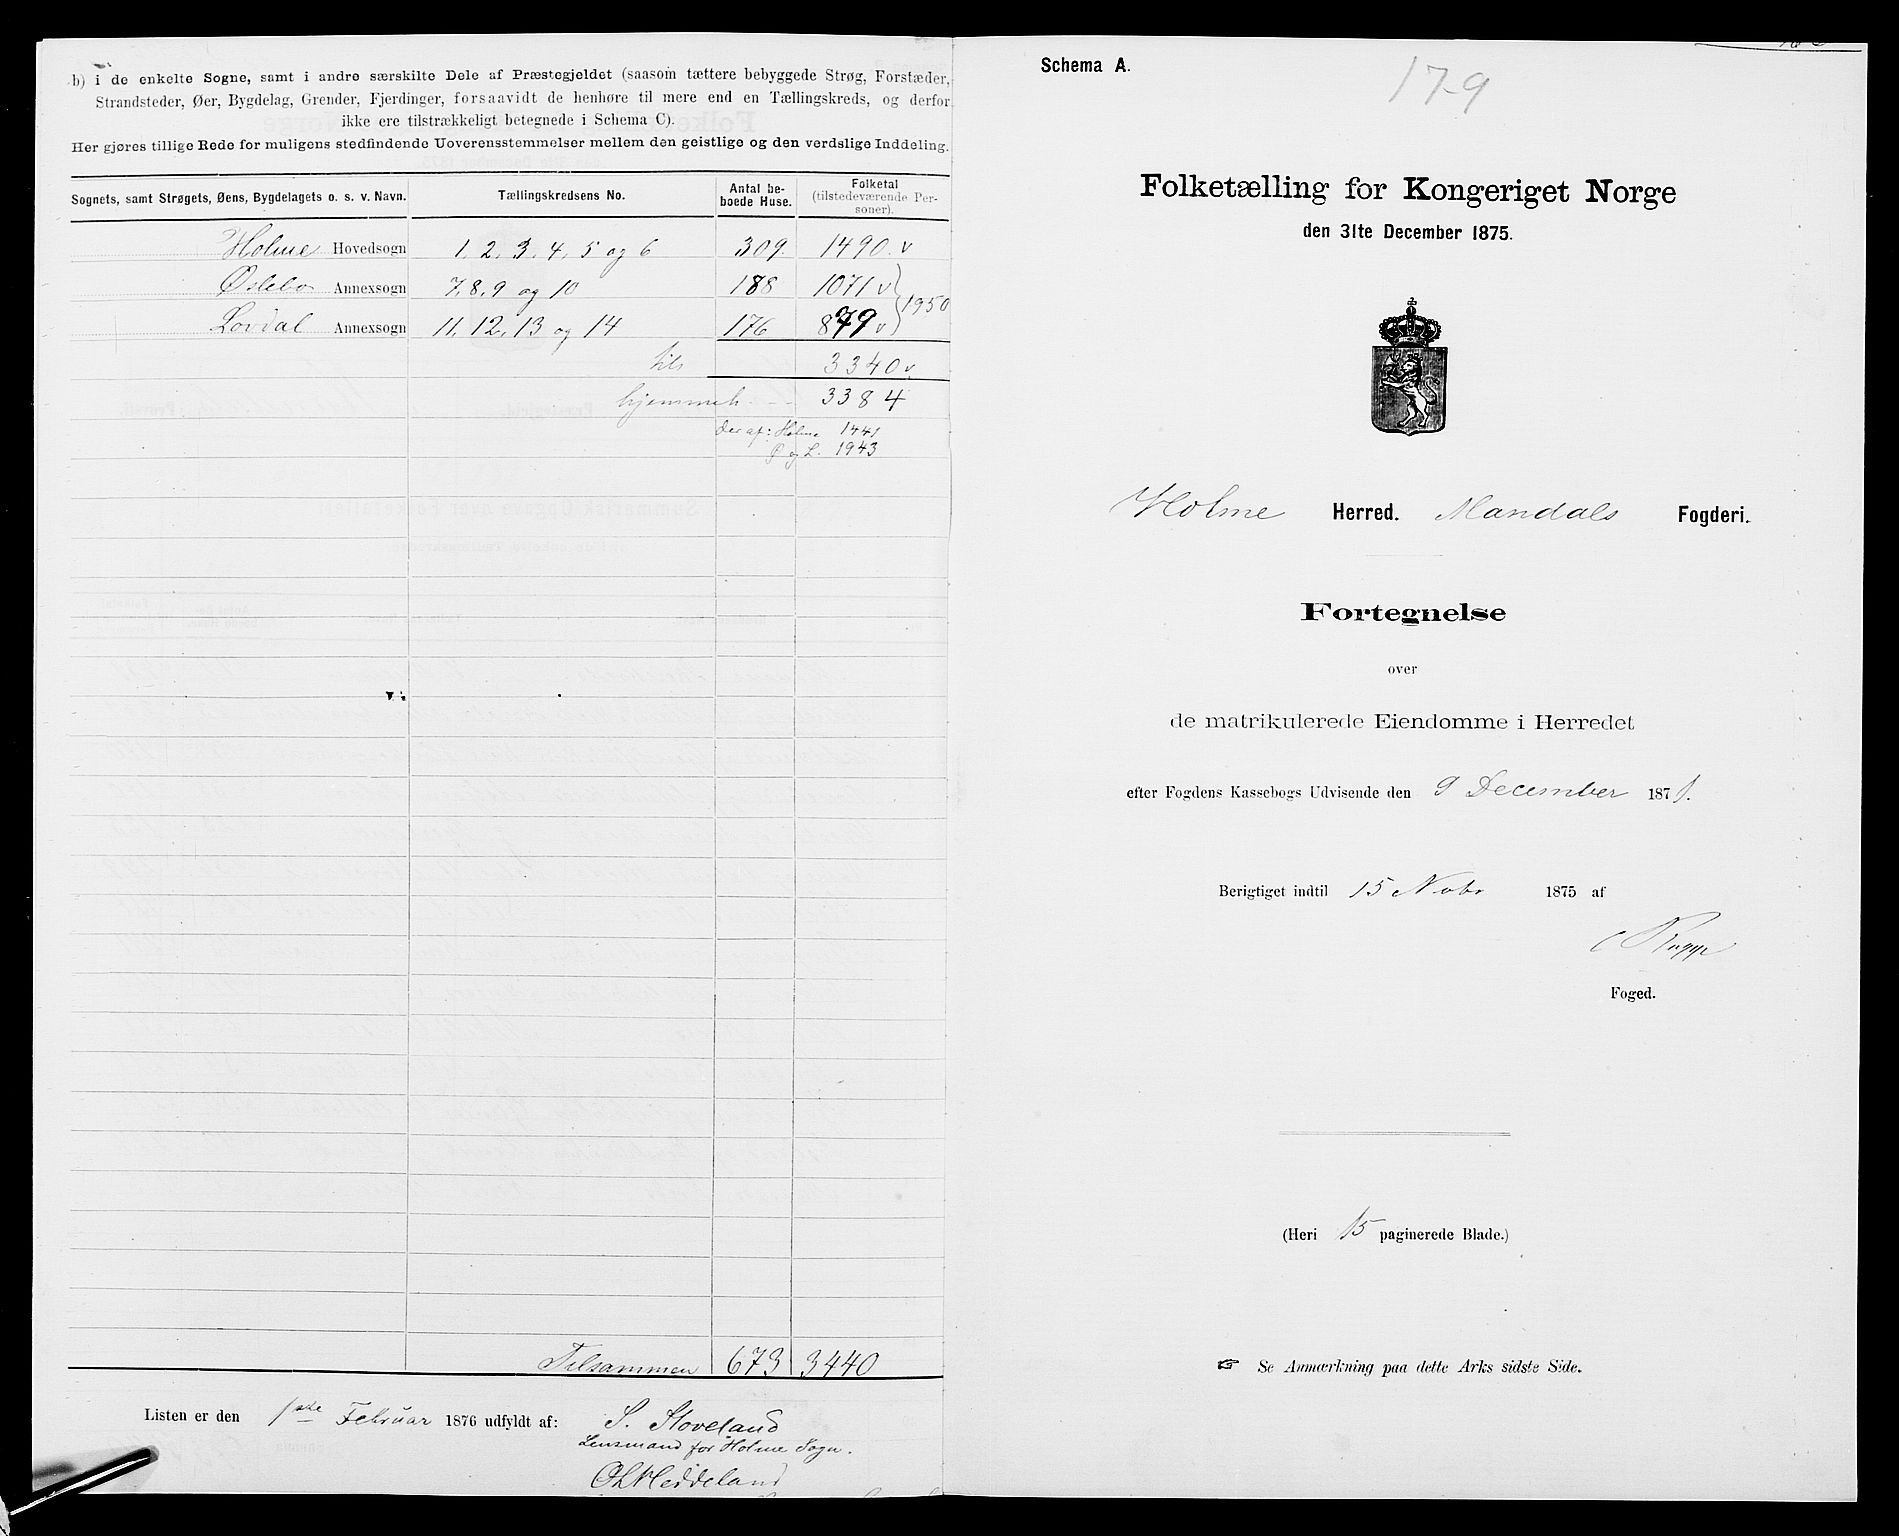 b) i de enkelte Sogne, samt i andre særskilte Dele af Præstegjeldet (saasom tættere bebyggede Strøg, Forstæder,
Strandsteder, Øer, Bygdelag, Grender, Fjerdinger, forsaavidt de henhøre til mere end en Tællingskreds, og derfor
ikke ere tilstrækkeligt betegnede i Schema C).
Her gjøres tillige Rede for muligens stedfindende Uoverensstemmelser mellem den geistlige og den verdslige Inddeling.
Sognets, samt Strøgets, Øens, Bygdelagets o. s. v. Navn. Tællingskredsens No. Antal beboede Huse. Folketal (tilstedeværende Personer).
Holme Hovedsogn 1, 2, 3, 4, 5 og 6 309. 1490. v
Øslebo Annexsogn 7, 8, 9 og 10 188 1071 v
1950
Lovdal Annexsogn 11, 12, 13 og 14 176 879 v
tils 3340 v.
hjemmeh. 3384
Deraf: Holme 1441
Ø og L. 1943
Tilsammen 673 3440
Listen er den 1ste Februar 1876 udfyldt af: S. Sloveland
Lensmand for Holme Sogn.
Heddeland
Schema A.
179
Folketælling for Kongeriget Norge
den 31te December 1875.
Holme Herred. Mandals Fogderi.
Fortegnelse
over
de matrikulerede Eiendomme i Herredet
efter Fogdens Kassebogs Udvisende den 9 December 187
Berigtiget indtil 15 Novbr 1875 af
Foged.
(Heri 15 paginerede Blade.)
☞ Se Anmærkning paa dette Arks sidste Side.